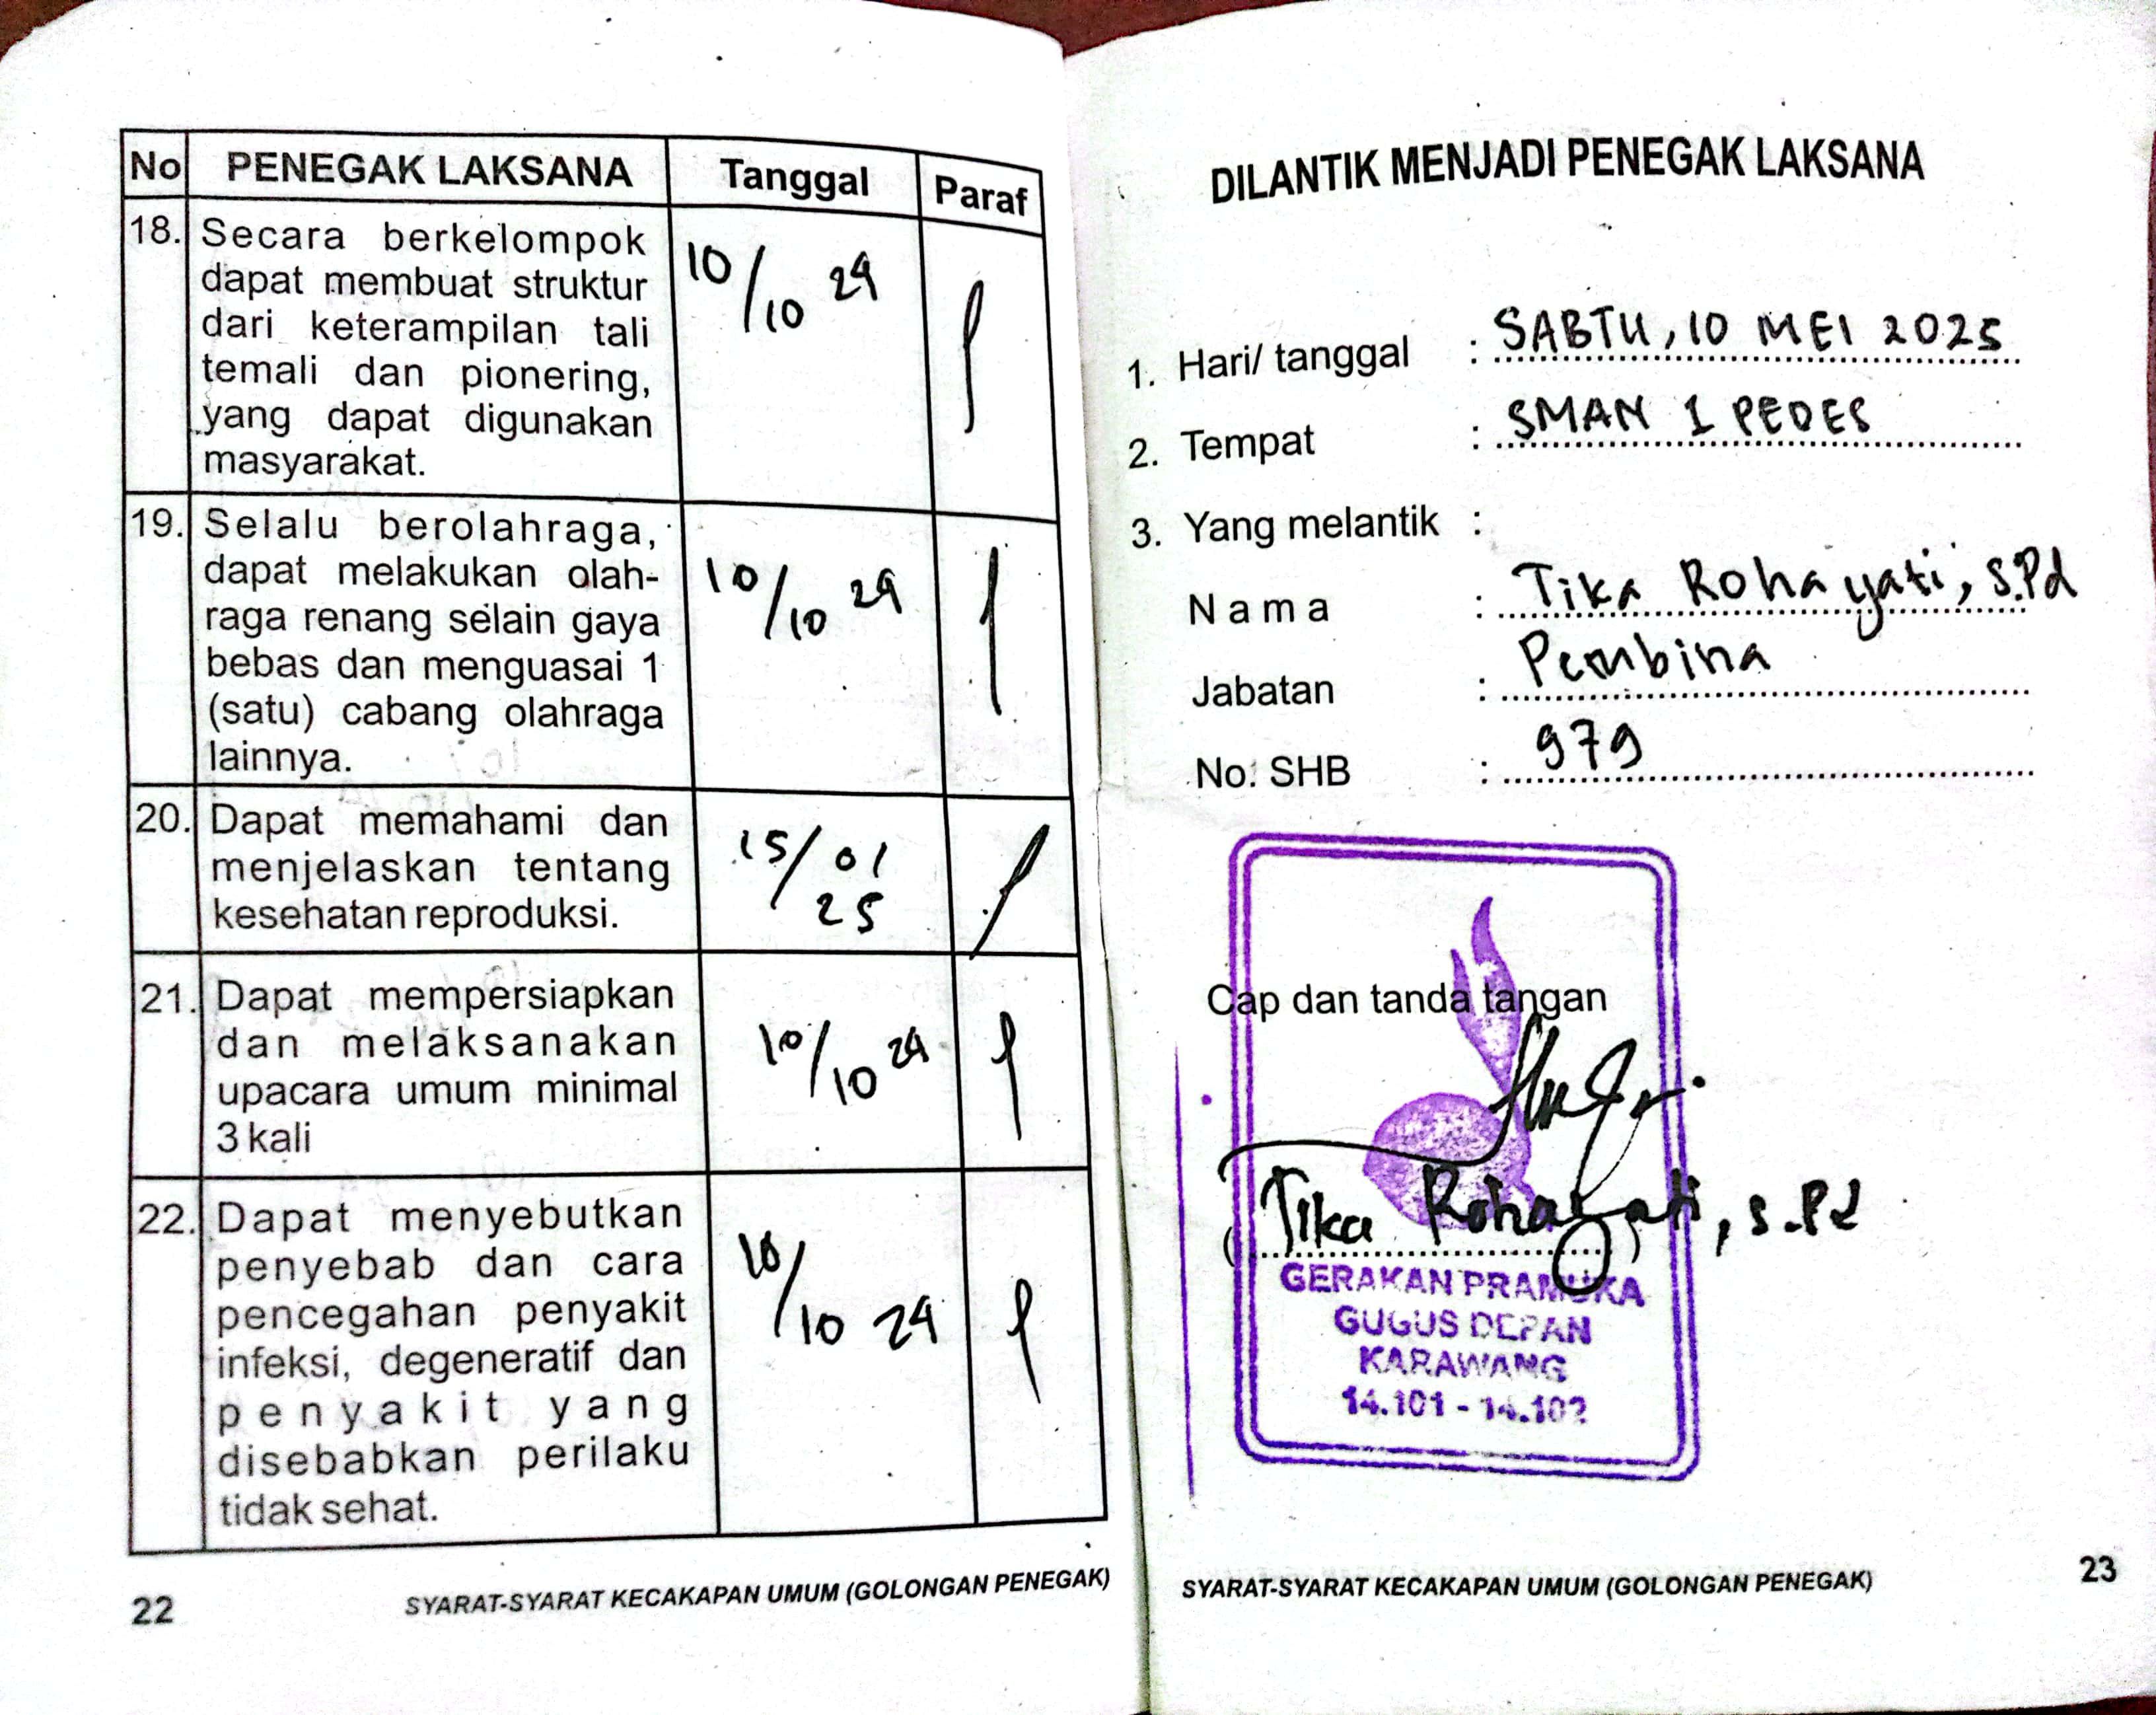 No PENEGAK LAKSANA Tanggal Paraf
18. Secara berkelompok
dapat membuat struktur
dari keterampilan tali
temali dan pionering,
yang dapat digunakan
masyarakat.
10/10 24
19. Selalu berolahraga,
dapat melakukan olah-
raga renang selain gaya
bebas dan menguasai 1
(satu) cabang olahraga
lainnya.
10/10 24
20. Dapat memahami dan
menjelaskan tentang
kesehatan reproduksi.
15/01
25
21. Dapat mempersiapkan
dan melaksanakan
upacara umum minimal
3 kali
10/10 24
22. Dapat menyebutkan
penyebab dan cara
pencegahan penyakit
infeksi, degeneratif dan
penyakit yang
disebabkan perilaku
tidak sehat.
10/10 24
22 SYARAT-SYARAT KECAKAPAN UMUM (GOLONGAN PENEGAK)
DILANTIK MENJADI PENEGAK LAKSANA
1. Hari/ tanggal : SABTU, 10 MEI 2025
2. Tempat : SMAN 1 PEDES
3. Yang melantik :
Nama : Tika Rohayati, S.Pd
Jabatan : Pembina
No. SHB : 979
Cap dan tanda tangan
(Tika Rohayati, S.Pd)
GERAKAN PRAMUKA
GUGUS DEPAN
KARAWANG
14.101 - 14.102
SYARAT-SYARAT KECAKAPAN UMUM (GOLONGAN PENEGAK) 23